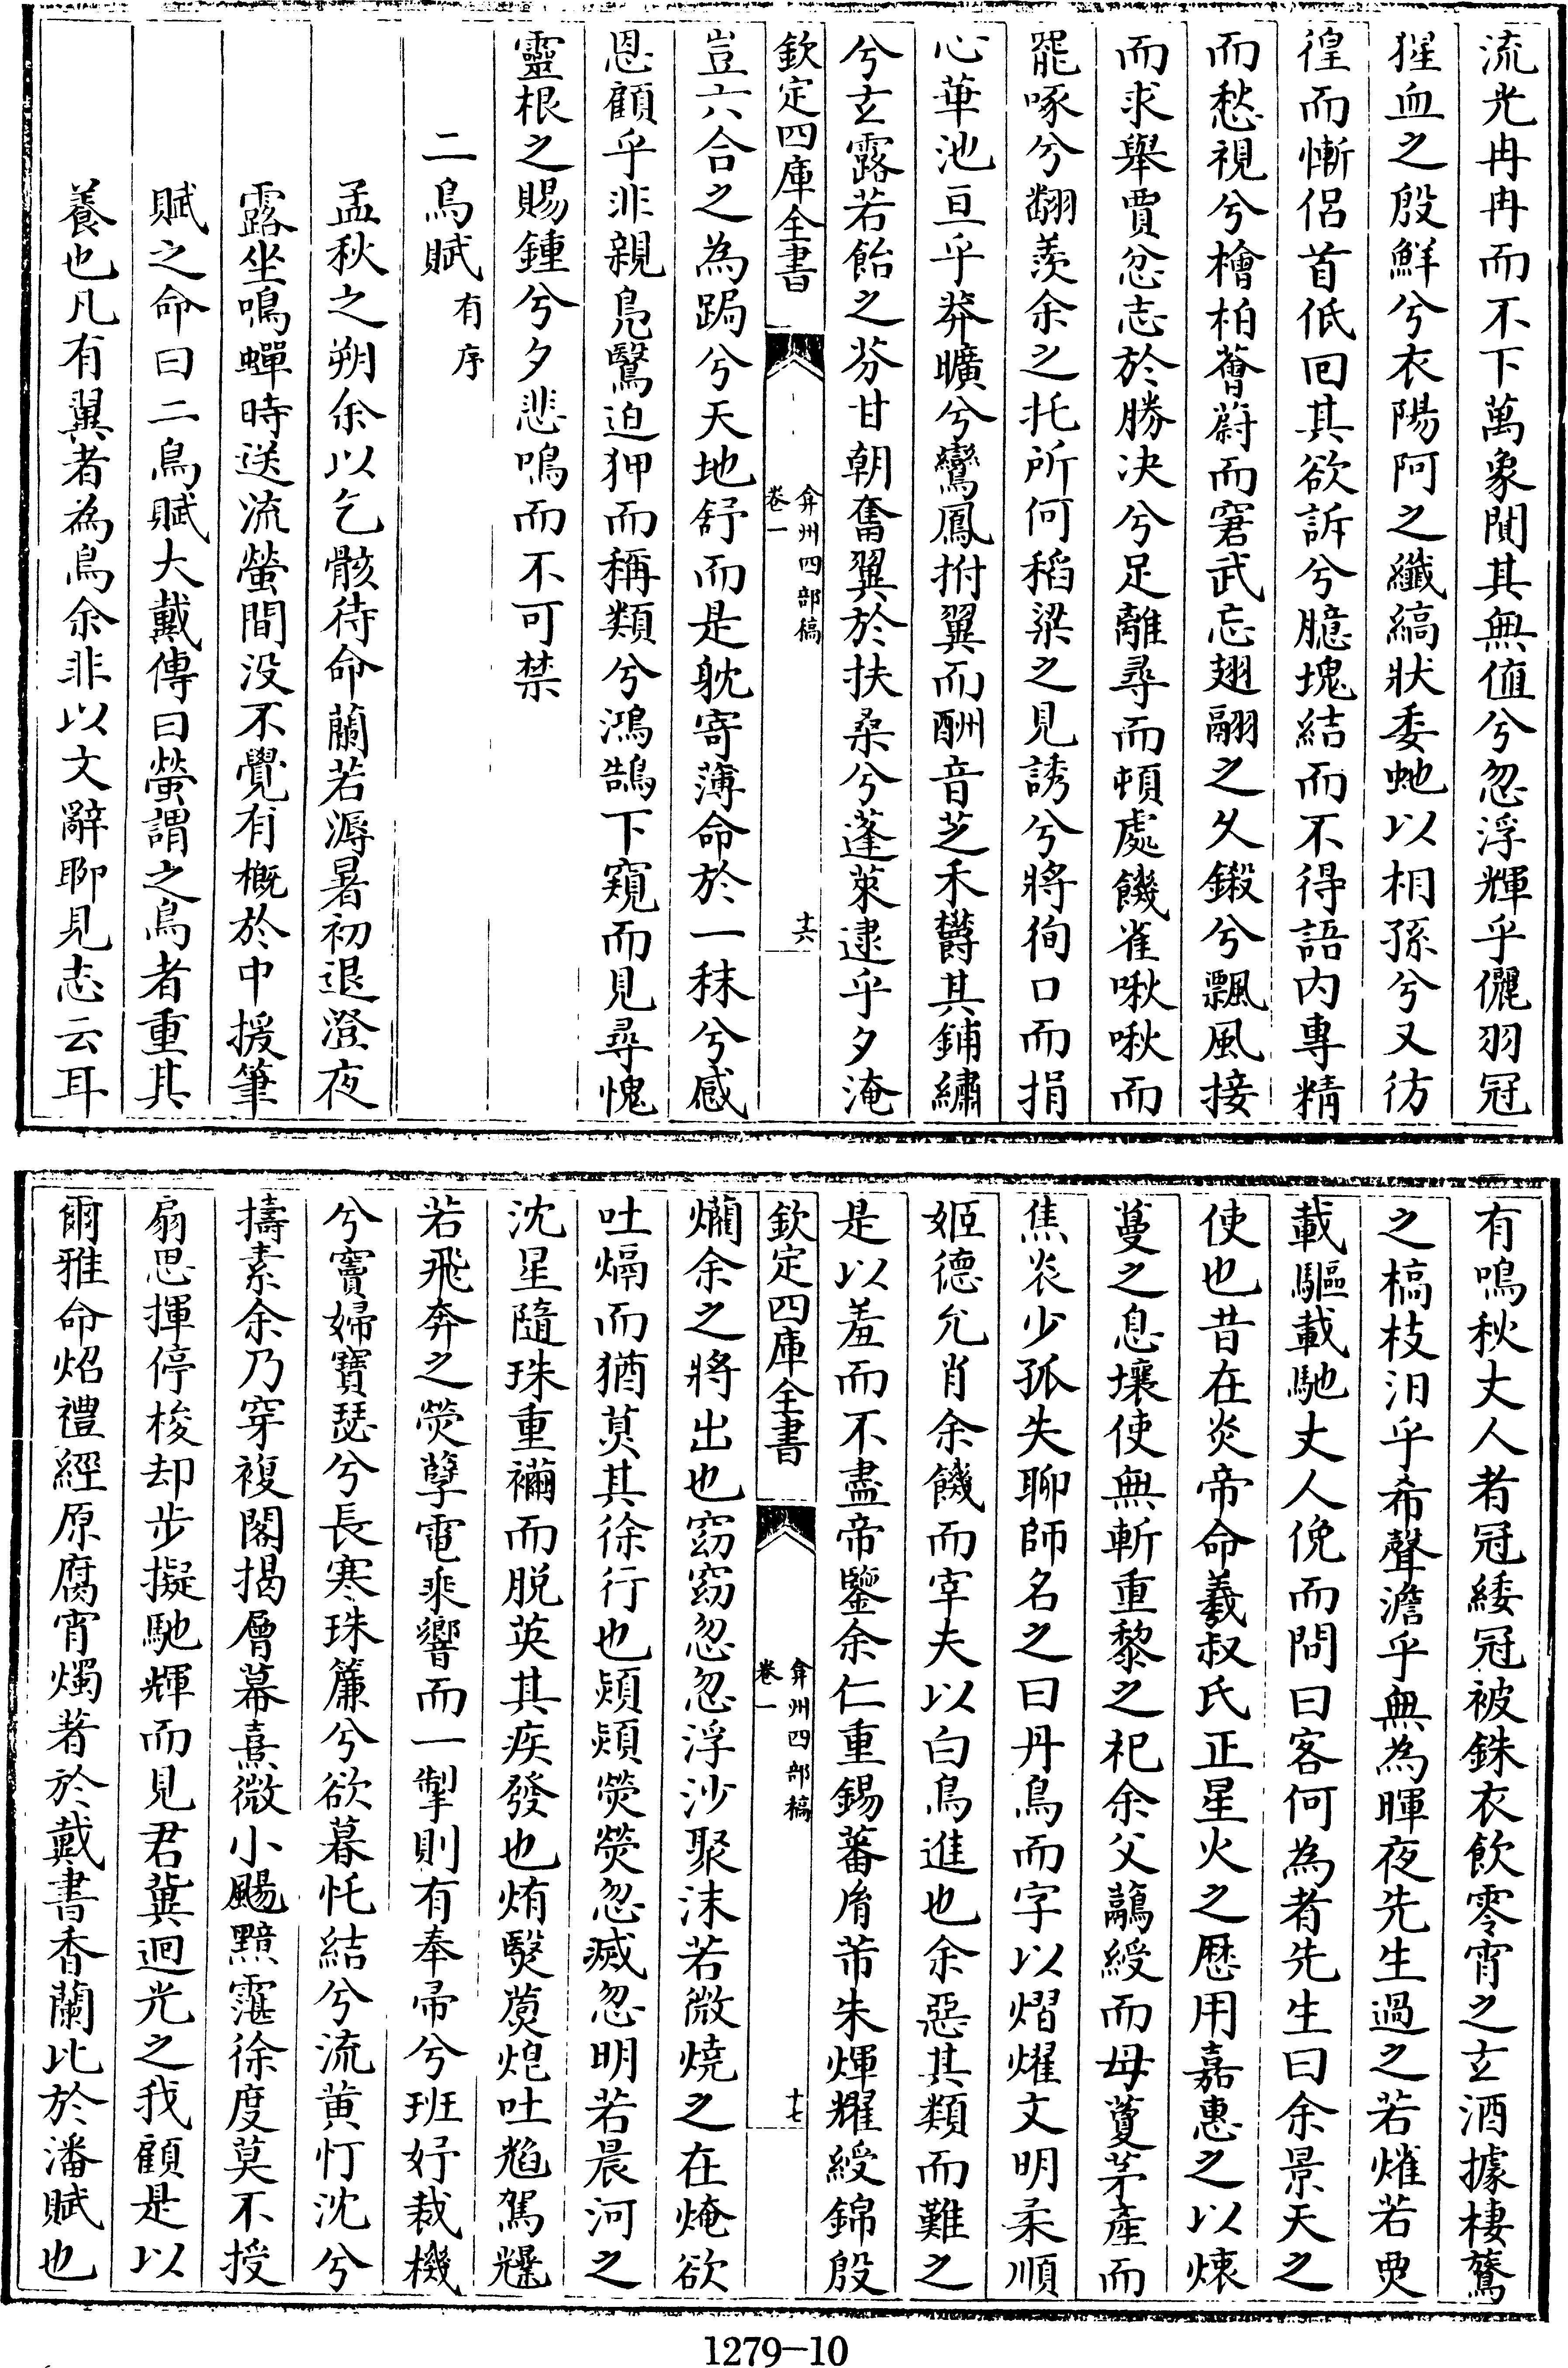 流光冉冉而不下萬象閴其無值兮忽浮輝乎儷羽冠
猩血之殷鮮兮衣陽阿之纖縞狀委虵以相孫兮又彷
徨而慚侣首低囘其欲訴兮臆塊結而不得語内專精
而愁視兮檜柏薈蔚而窘武忘翅翮之乆鎩兮飄風接
而求舉賈忿志於勝决兮足離尋而頓處饑雀啾啾而
罷啄兮翻羨余之托所何稻粱之見誘兮將徇口而捐
心華池亘乎莽曠兮鸞鳳拊翼而酬音芝禾欝其鋪繡
兮玄露若飴之芬甘朝奮翼於扶桑兮蓬萊逮乎夕淹
欽定四庫全書
弇州四部稿
卷一
十六
豈六合之為跼兮天地舒而是躭寄薄命於一秣兮感
恩顧乎非親鳬鷖迫狎而稱類兮鴻鵠下窺而見尋愧
靈根之賜鍾兮夕悲鳴而不可禁
二鳥賦有序
孟秋之朔余以乞骸待命蘭若溽暑初退澄夜
露坐鳴蟬時送流螢間没不覺有概於中援筆
賦之命曰二鳥賦大戴傳曰螢謂之鳥者重其
養也凡有翼者為鳥余非以文辭聊見志云耳
有鳴秋丈人者冠緌冠被銖衣飲零宵之玄酒據棲鶩
之槁枝汨乎希聲澹乎無為暉夜先生過之若熣若㷠
載驅載馳丈人俛而問曰客何為者先生曰余景天之
使也昔在炎帝命羲叔氏正星火之厯用嘉惠之以懐
蔓之息壤使無斬重黎之祀余父虉綬而母藑茅產而
焦炭少孤失聊師名之曰丹鳥而字以熠燿文明柔順
姬德允肖余饑而宰夫以白鳥進也余惡其類而難之
是以羞而不盡帝鑒余仁重錫蕃胤芾朱煇耀綬錦殷
欽定四庫全書
弇州四部稿
卷一
十七
爛余之將出也窈窈忽忽浮沙聚沫若微燒之在焔欲
吐熇而猶莫其徐行也熲熲熒熒忽滅忽明若晨河之
沈星隨珠重襺而脱英其疾發也烠烎藀炮吐㷟駕糶
若飛奔之熒孽電乘響而一掣則有奉帚兮班妤裁機
兮竇婦寶瑟兮長寒珠簾兮欲暮忳結兮流黄忊沈兮
擣素余乃穿複閣揭層幕熹微小颺黯霮徐度莫不授
扇思揮停梭却步擬馳輝而見君冀迴光之我顧是以
爾雅命炤禮經原腐宵燭者於戴書香蘭比於潘賦也
1279-10